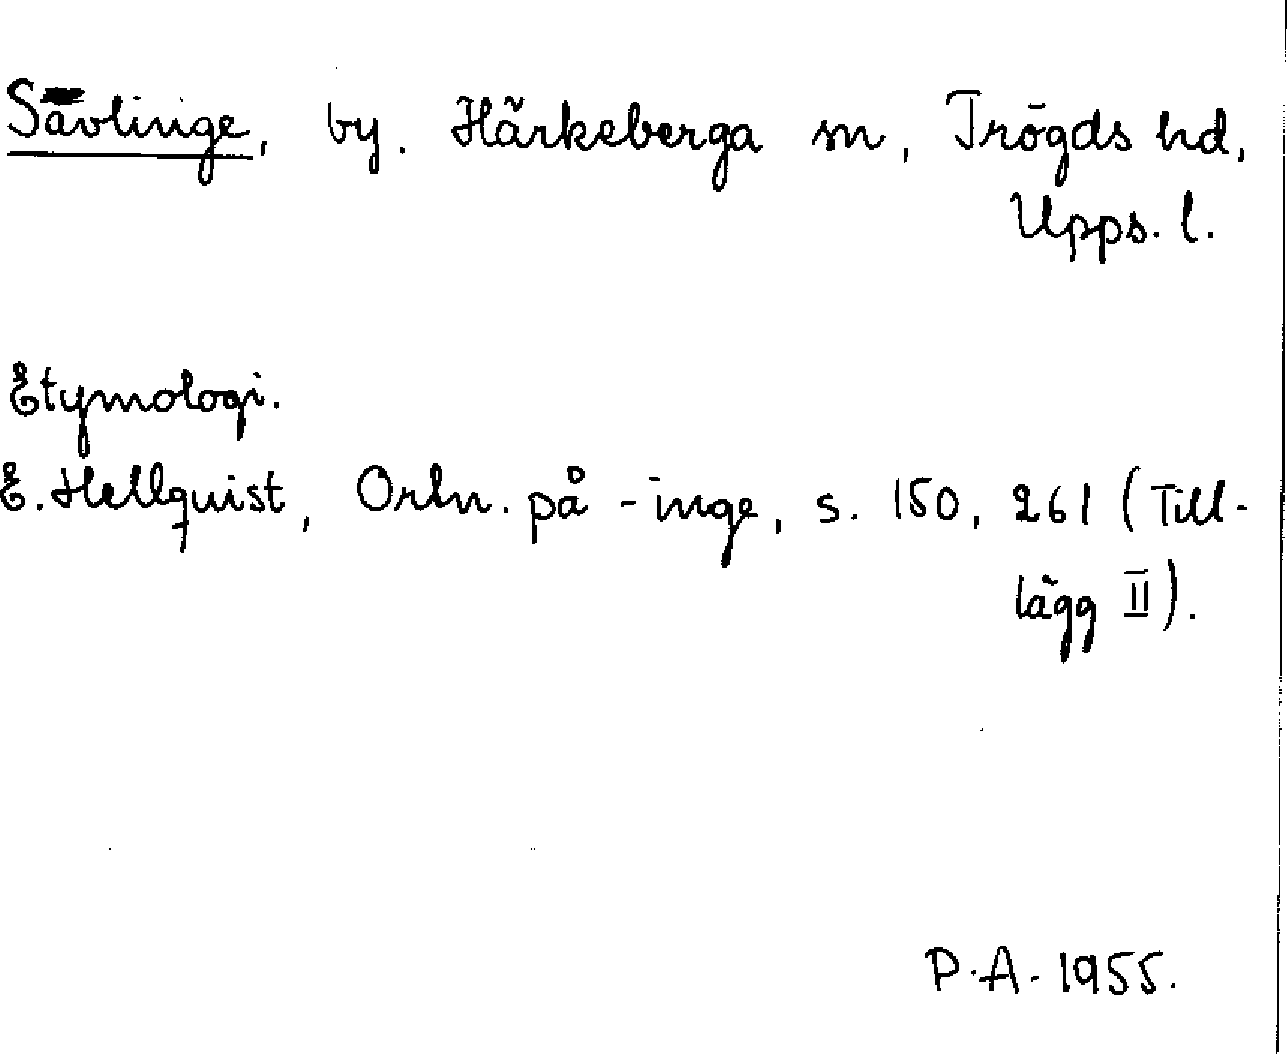 Sävlinge, by. Härkeberga sn, Trögds hd,
Upps. l.
Etymologi.
E. Hellquist, Ortn. på -inge, s. 150, 261 (Till-
lägg II).
P.A. 1955.